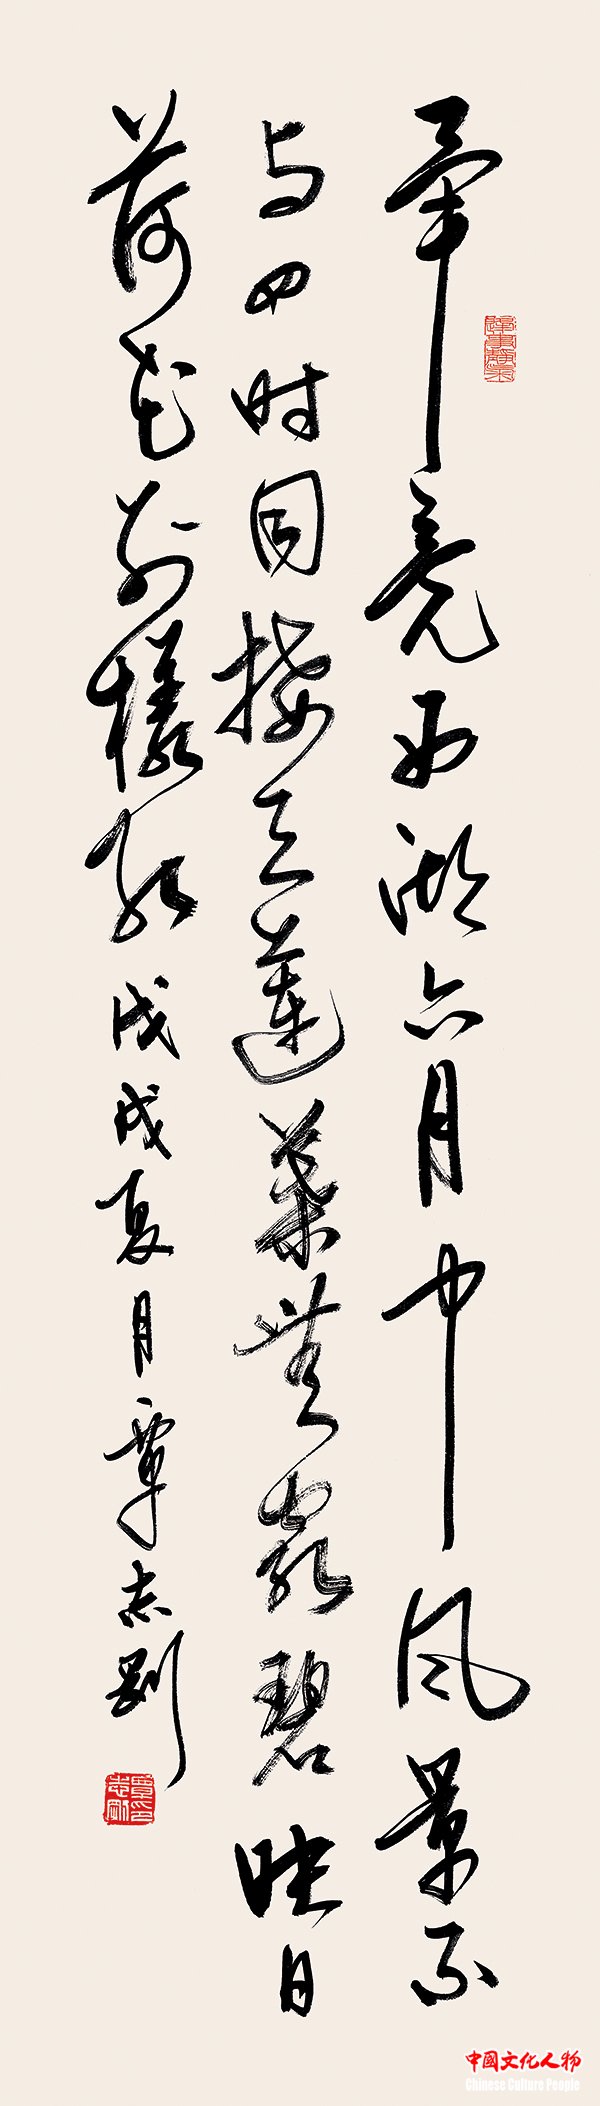 畢竟西湖六月中风景不
与四时同接天蓮葉無窮碧映日
荷花别樣红戊戌夏月覃志剛
覃志剛印
中國文化人物
Chinese Culture People